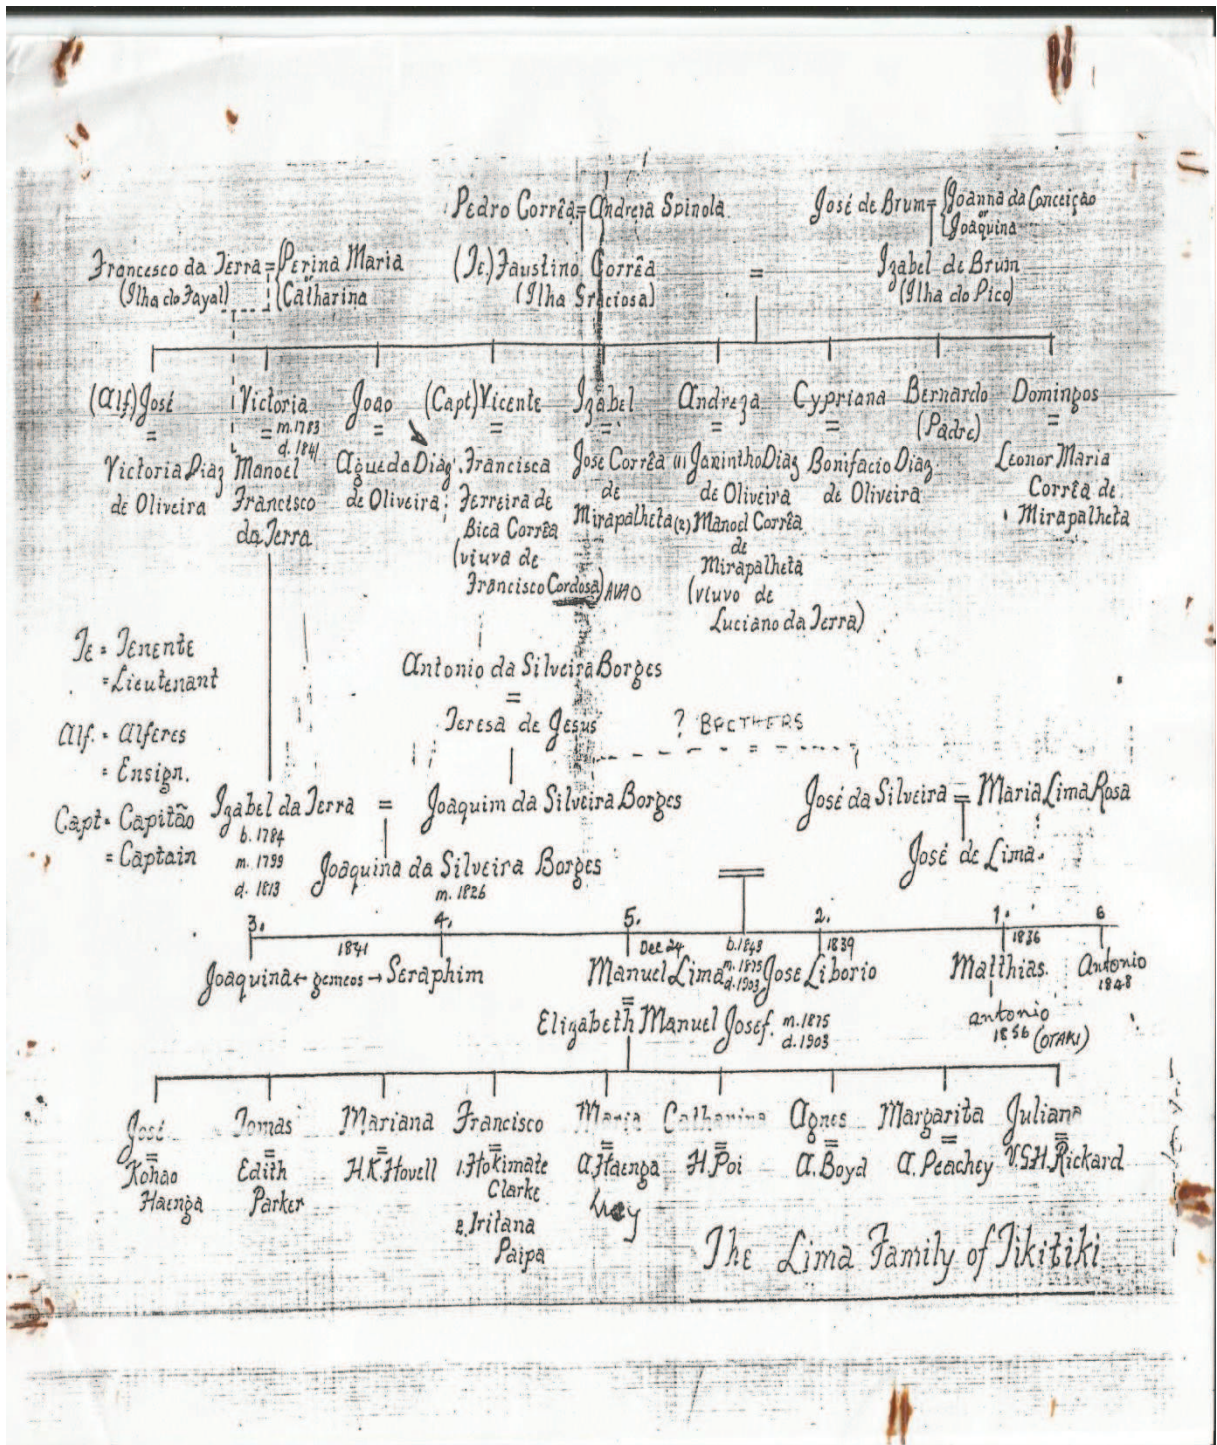 Pedro Corrêa = Andreza Spinola.
José de Brum = {Joanna da Conceição
or
{Joaquina
Francesco da Terra = {Perina Maria
or
{Catharina
(Ilha do Fayal)
(Te.) Faustino Corrêa
(Ilha Graciosa)
=
Izabel de Brum
(Ilha do Pico)
(Alf.) José
=
Victoria Diaz
de Oliveira
Victoria
= m. 1783
d. 1841
Manoel
Francisco
da Terra
João
=
Agueda Diaz
de Oliveira
(Capt) Vicente
=
Francisca
Ferreira de
Bica Corrêa
(viuva de
Francisco Cordosa) AVAO
Izabel
=
José Corrêa
de
Mirapalheta
Andreza
=
(1) Janintho Diaz
de Oliveira
(2) Manoel Corrêa
de
Mirapalheta
(viuvo de
Luciano da Terra)
Cypriana
=
Bonifacio Diaz
de Oliveira
Bernardo
(Padre)
Domingos
=
Leonor Maria
Corrêa de
Mirapalheta
Te = Tenente
= Lieutenant
Alf. = Alferes
= Ensign.
Capt = Capitão
= Captain
Antonio da Silveira Borges
=
Teresa de Jesus
? BROTHERS
Izabel da Terra = Joaquim da Silveira Borges
b. 1784
m. 1799
d. 1813
José da Silveira = Maria Lima Rosa
Joaquina da Silveira Borges
m. 1826
=
José de Lima.
3. 4. 5. 2. 1. 6
1841 Dec 24 b. 1843 1839 1836
m. 1875
d. 1903
Joaquina ← gemeos → Seraphim Manuel Lima José Liborio Matthias. Antonio
1848
=
Elizabeth Manuel Josef. m. 1875
d. 1903
Antonio
1856 (OTAKI)
José
=
Kohao
Haenga
Tomas
=
Edith
Parker
Mariana
=
H.K. Hovell
Francisco
=
1. Hokimate
Clarke
2. Iritana
Paipa
Maria
=
A. Haenga
Catharina
=
H. Poi
Agnes
=
A. Boyd
Margarita
=
A. Peachey
Juliana
=
V.G.H. Rickard
The Lima Family of Tikitiki